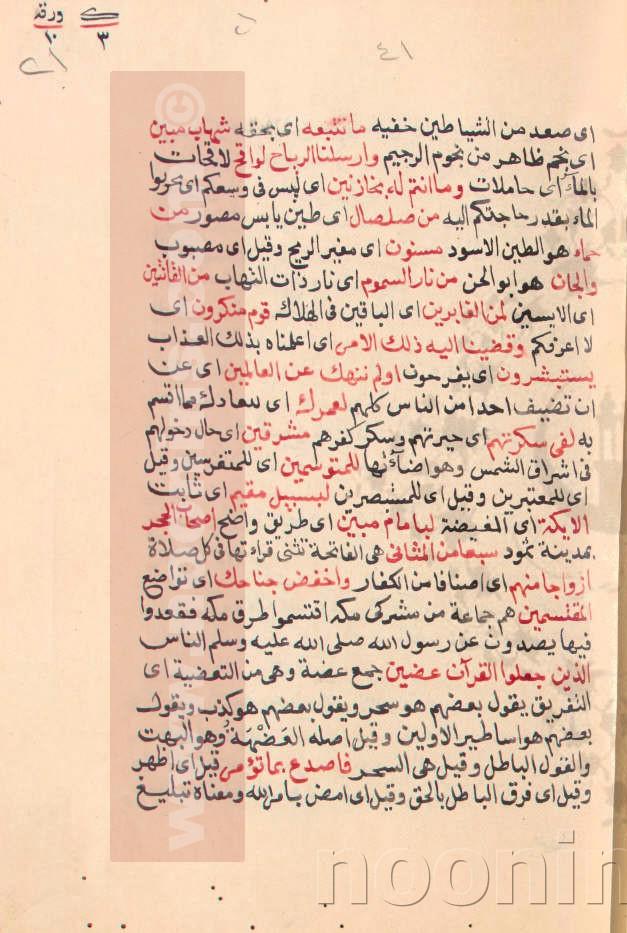 ك ورقه
٣ ١٠
٤١
اى صعد من الشياطين خفيه ماتتبعه اى بحقه شهاب مبين
اى نجم ظاهر من نجوم الرجيم وارسلنا الرياح لواقح لاقحات
بالماء اى حاملات وما انتم له بخازنين اى ليس فى وسعكم اى
الماء بقدر حاجتكم اليه من صلصال اى طين يابس مصور من
حماء هو الطين الاسود مسنون اى مغير الريح وقيل اى مصبوب
والجان هو ابو الجن من نار السموم اى نار ذات التهاب من القانتين
اى الايسين لمن الغابرين اى الباقين فى الهلاك قوم منكرون اى
لا اعرفكم وقضينا اليه ذلك الامر اى اعلمناه بذلك العذاب
يستبشرون اى يفرحون اولم ننهك عن العالمين اى عن
ان تضيف احدا من الناس كلهم لعمرك اى
به لفى سكرتهم اى حيرتهم وسكر كفرهم مشرقين اى حال دخولهم
فى اشراق الشمس وهو اضاءتها للمتوسمين اى للمتفرسين وقيل
اى للمعتبرين وقيل اى للمتبصرين لبسبيل مقيم اى ثابت
الايكة اى الغيضة لبامام مبين اى طريق واضح اصحاب الحجر
بمدينة ثمود سبعا من المثانى هى الفاتحة تثنى قراءتها فى كل صلاة
ازواجا منهم اى اصنافا من الكفار واخفض جناحك اى تواضع
المقتسمين هم جماعة من مشركى مكه اقتسموا طرق مكه فقعدوا
فيها يصدون عن رسول الله صلى الله عليه وسلم الناس
الذين جعلوا القرآن عضين جمع عضة وهى من التعضية اى
التفريق يقول بعضهم هو سحر ويقول بعضهم هو كذب ويقول
بعضهم هو اساطير الاولين وقيل اصله العَضْهَة وهو البهت
والقول الباطل وقيل هى السحر فاصدع بما تؤمر قيل اى اظهر
وقيل اى فرق الباطل بالحق وقيل اى امض بامر الله ومعناه تبليغ
noonin